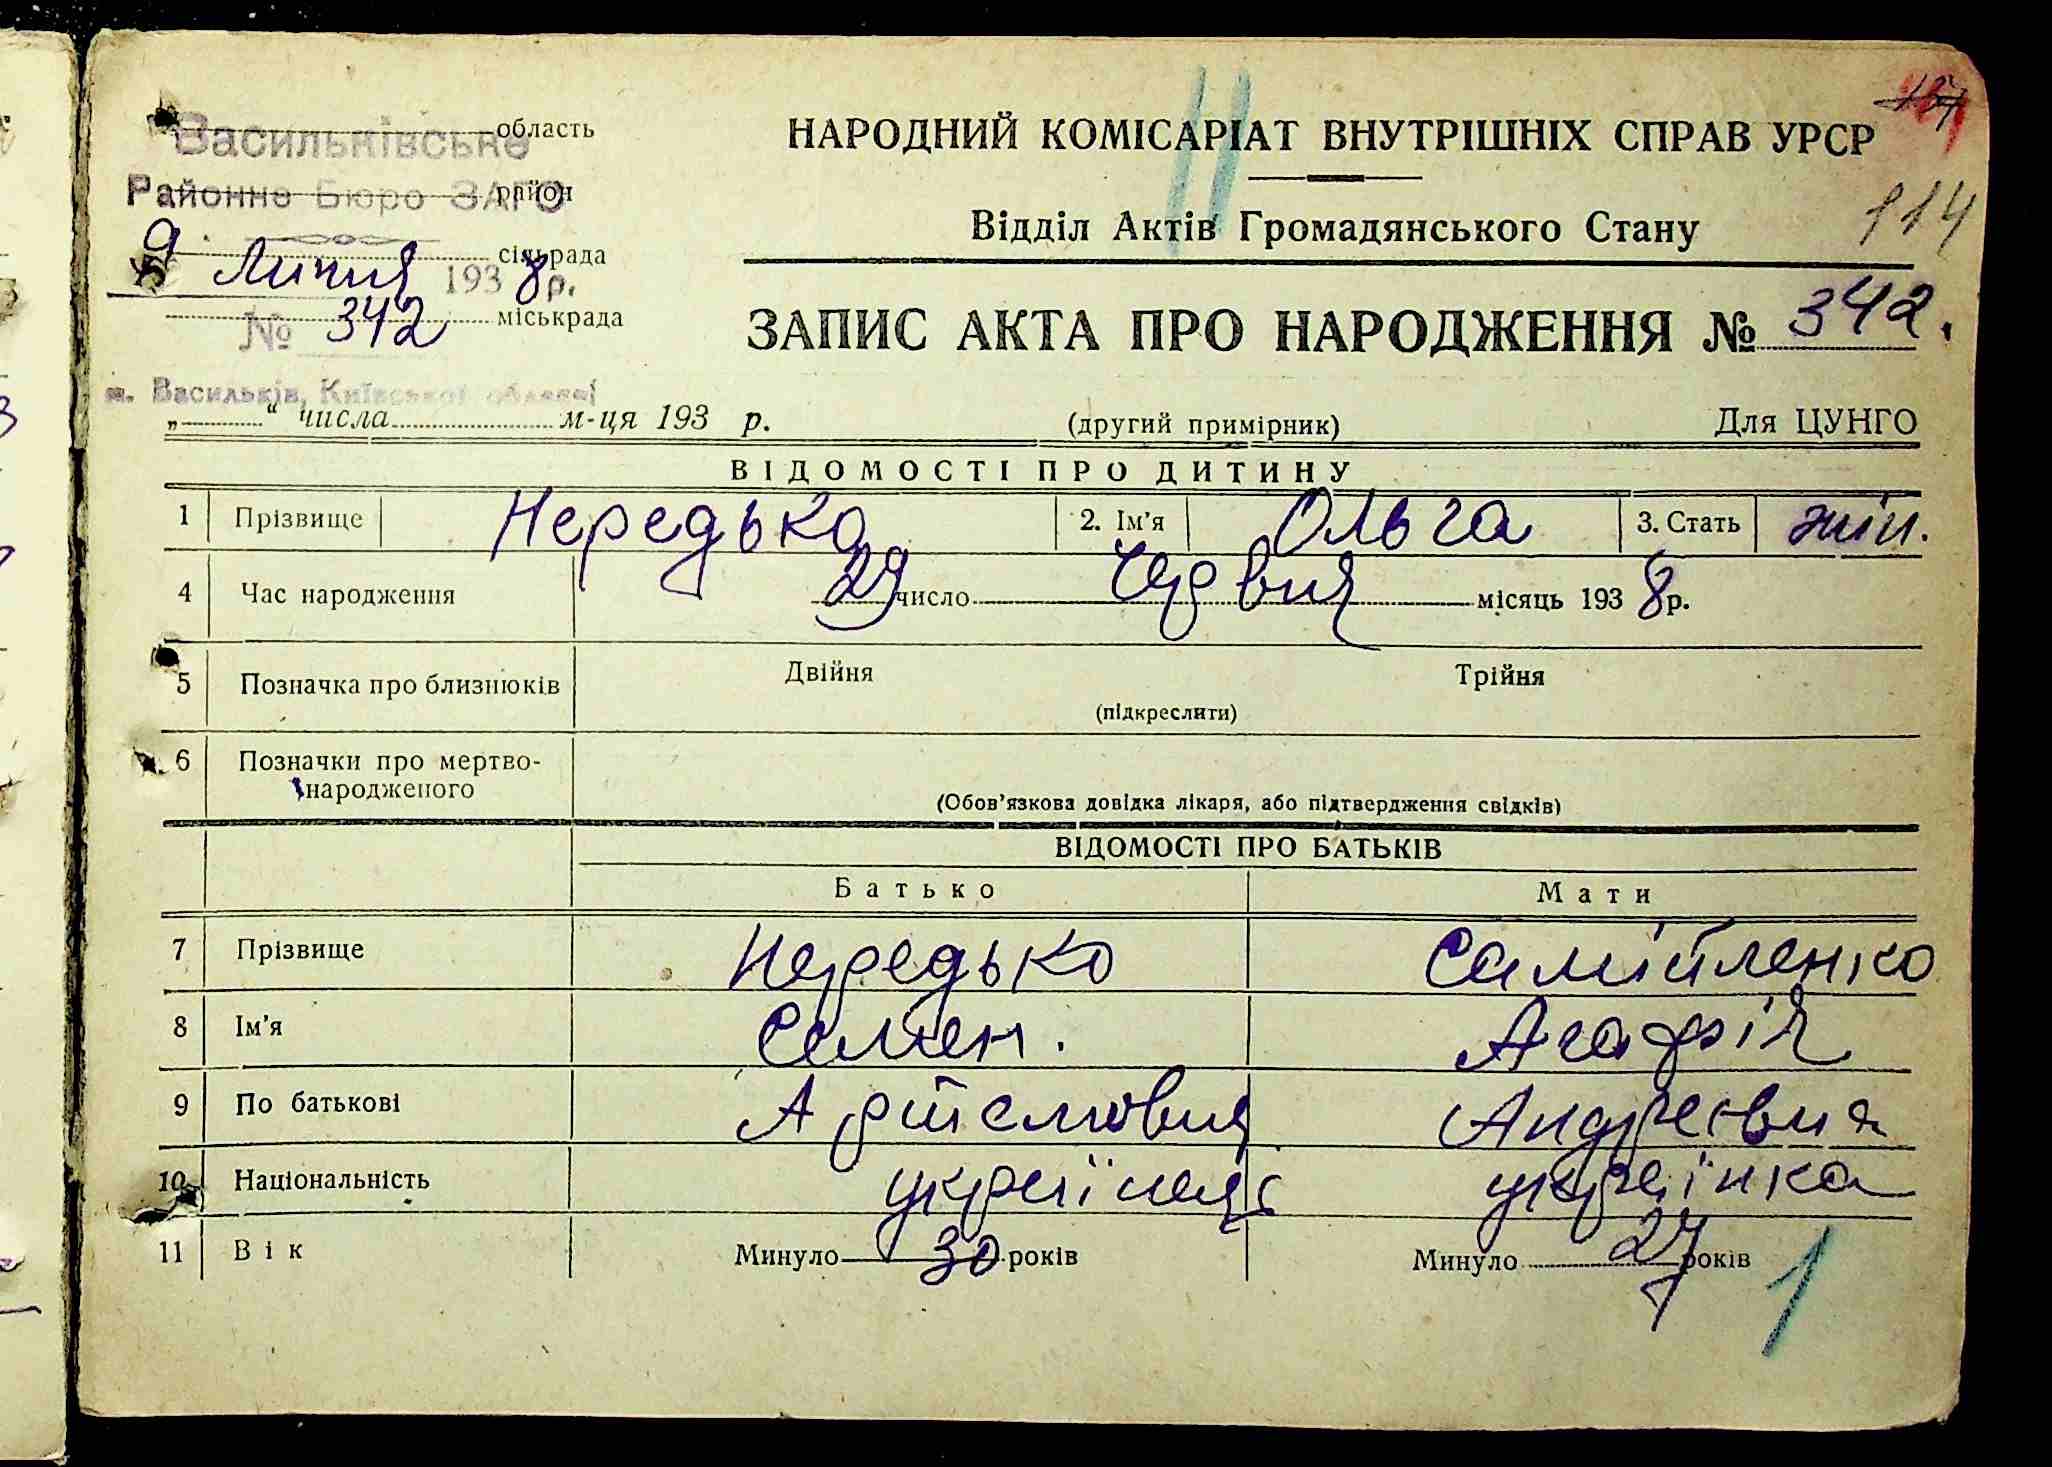 137
НАРОДНИЙ КОМІСАРІАТ ВНУТРІШНІХ СПРАВ УРСР
114
Відділ Актів Громадянського Стану
Васильківське область
Районне Бюро ЗАГС район
сільрада
9 Липня 1938 р.
№ 342 міськрада
ЗАПИС АКТА ПРО НАРОДЖЕННЯ № 342.
м. Васильків, Київської області
„ “ числа м-ця 193 р. (другий примірник) Для ЦУНГО
ВІДОМОСТІ ПРО ДИТИНУ
1 Прізвище Нередько 2. Ім’я Ольга 3. Стать жін.
4 Час народження 29 число Червня місяць 1938 р.
5 Позначка про близнюків Двійня Трійня
(підкреслити)
6 Позначки про мертво-
народженого
(Обов’язкова довідка лікаря, або підтвердження свідків)
ВІДОМОСТІ ПРО БАТЬКІВ
Батько Мати
7 Прізвище Нередько Самійленко
8 Ім’я Семен. Агафія
9 По батькові Артемович Андреєвна
10 Національність українець українка
11 Вік Минуло 30 років Минуло 27 років
1